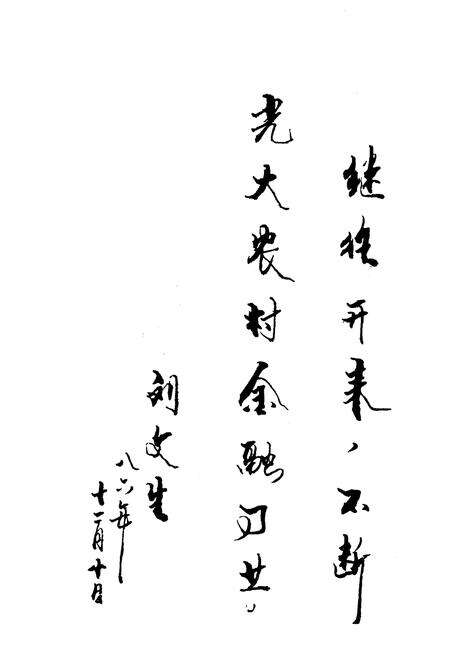 继往开来，不断
光大农村金融事业。
刘文生
八六年
十一月十日